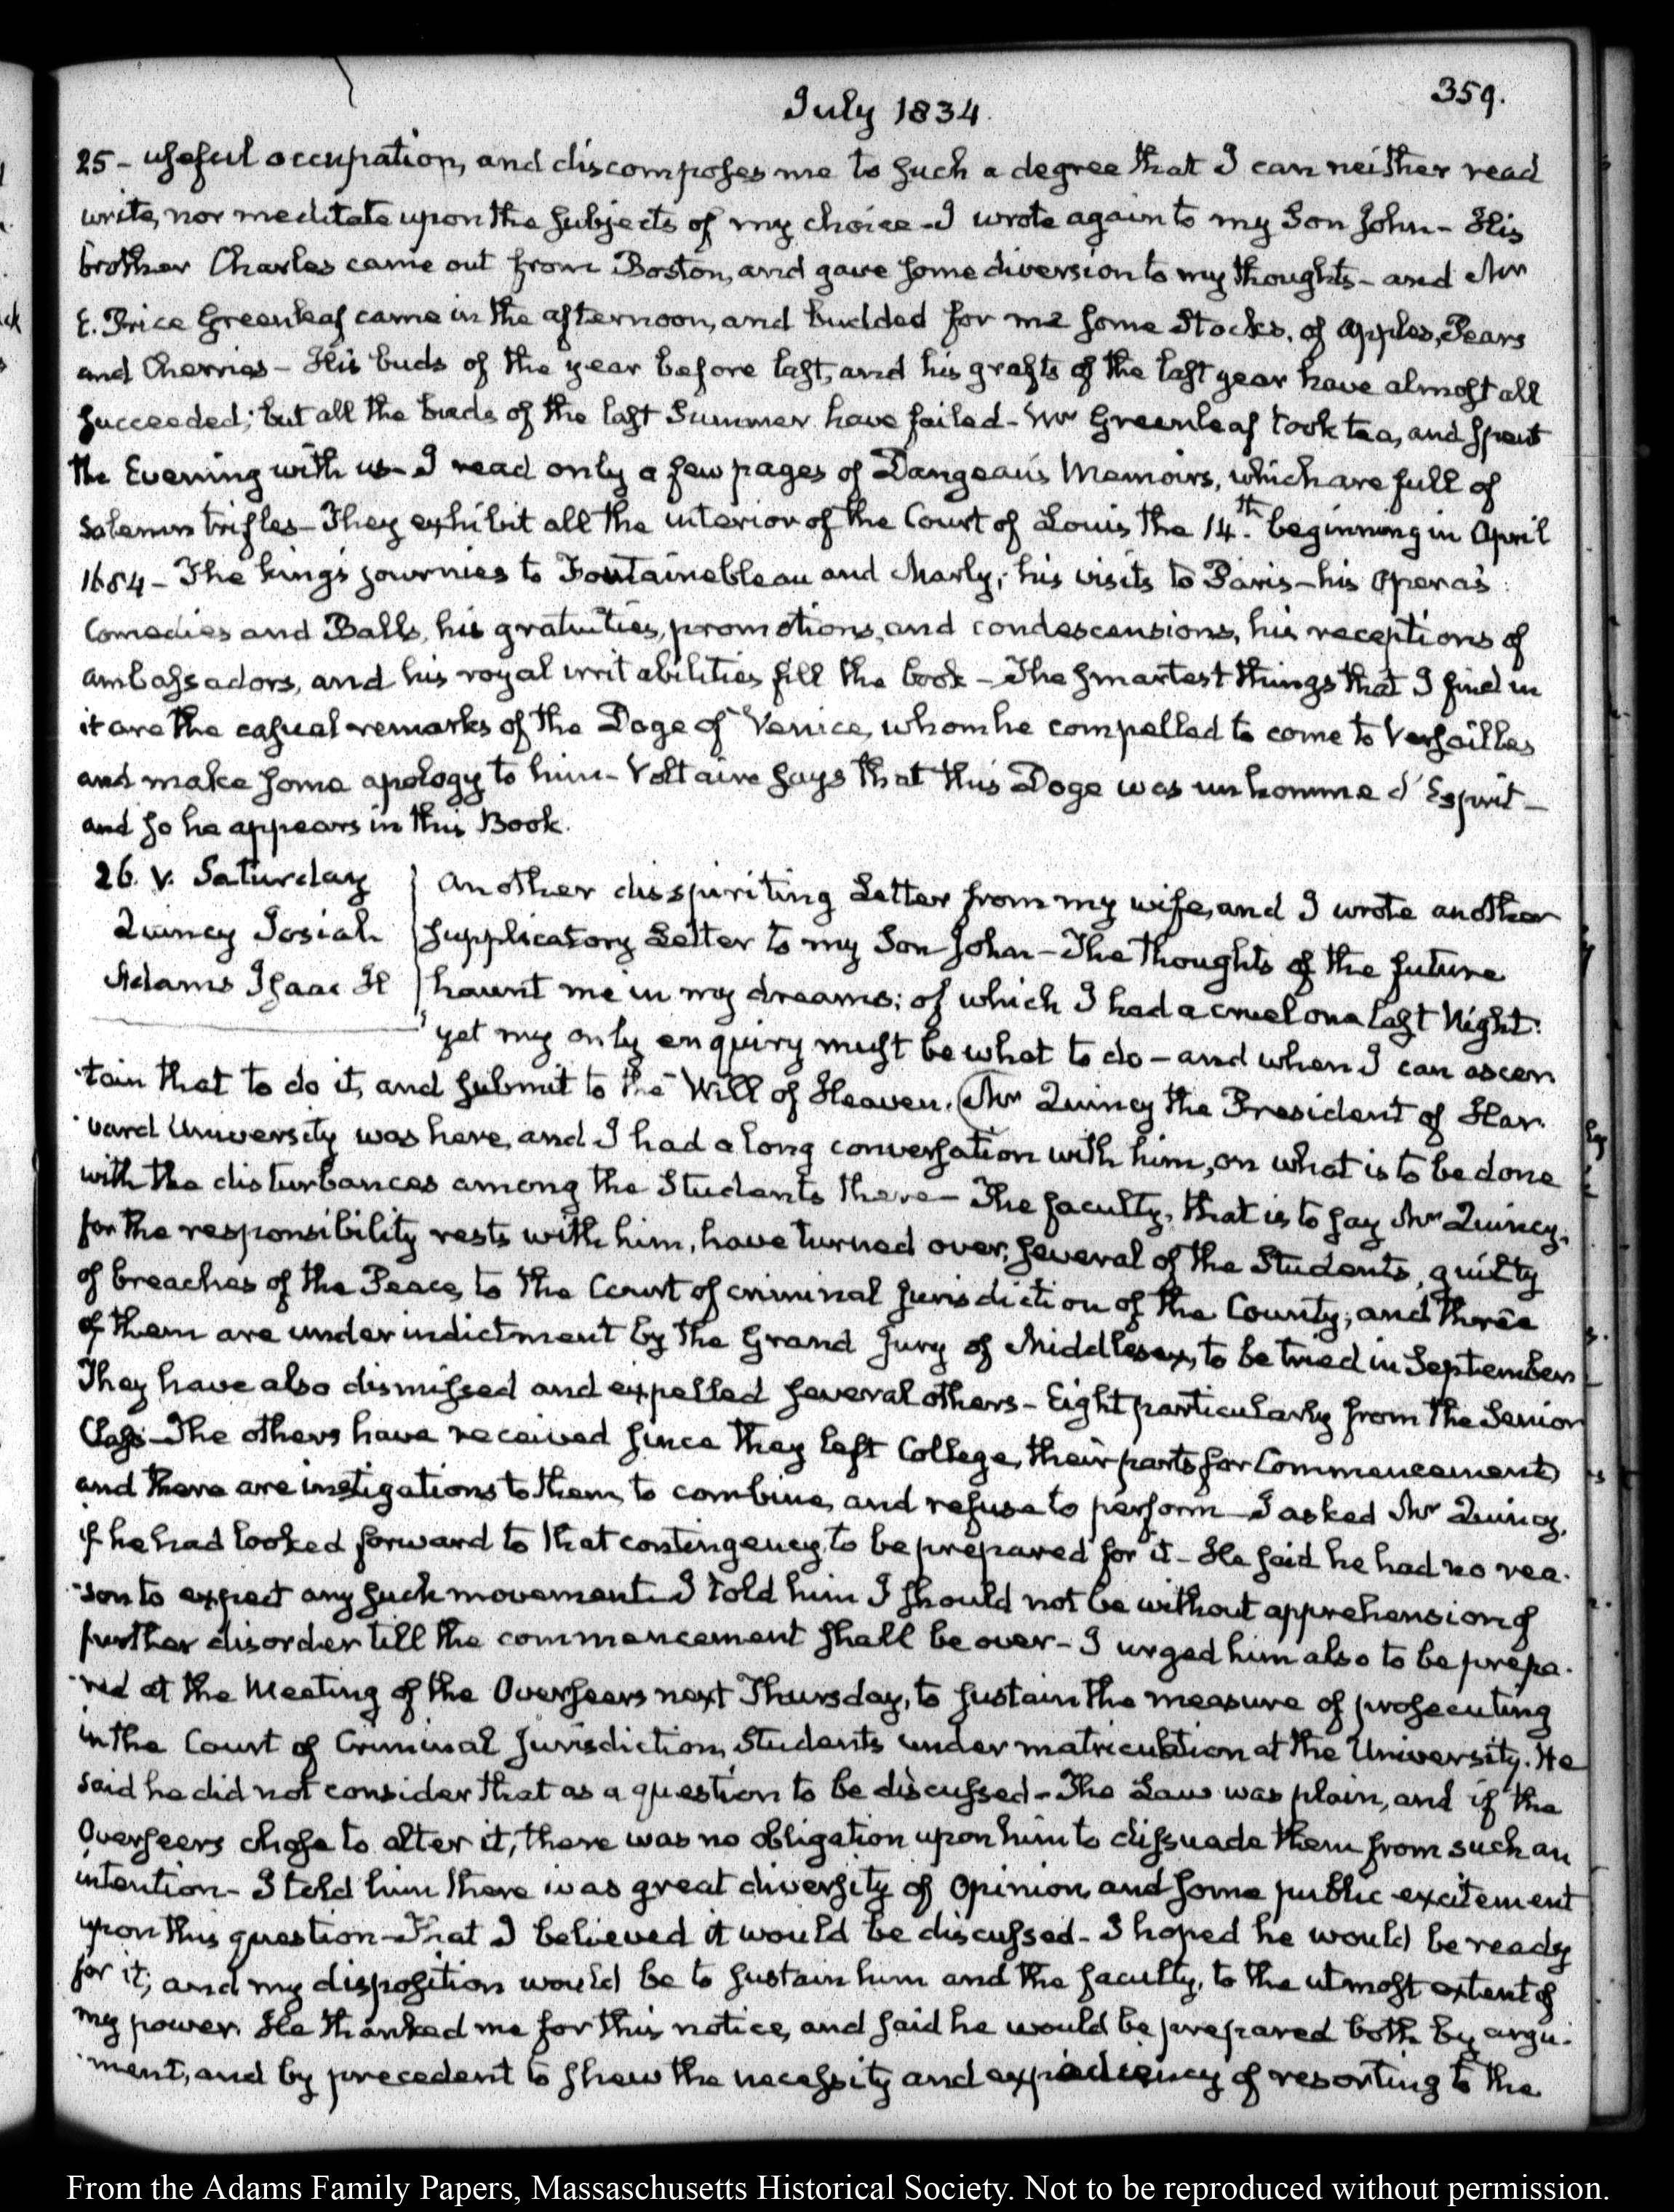 359.
July 1834.
25 - useful occupation, and discomposes me to such a degree that I can neither read
write, nor meditate upon the subjects of my choice - I wrote again to my Son John - His
brother Charles came out from Boston, and gave some diversion to my thoughts - and Mr
E. Price Greenleaf came in the afternoon, and budded for me some Stocks, of Apples, Pears
and Cherries - His buds of the year before last, and his grafts of the last year have almost all
succeeded; but all the buds of the last Summer have failed - Mr Greenleaf took tea, and spent
the Evening with us - I read only a few pages of Dangeau's Memoirs, which are full of
solemn trifles - They exhibit all the interior of the Court of Louis the 14.th beginning in April
1684 - The king's journies to Fontainebleau and Marly; his visits to Paris - his Opera's
Comedies and Balls, his gratuities, promotions, and condescensions, his receptions of
ambassadors, and his royal irritabilities fill the book - The smartest things that I find in
it are the casual remarks of the Doge of Venice, whom he compelled to come to Versailles
and make some apology to him - Voltaire says that this Doge was un homme d'Esprit -
and so he appears in this Book.
26. V. Saturday
Quincy Josiah
Adams Isaac H
Another disspiriting Letter from my wife, and I wrote another
supplicatory Letter to my Son John - The thoughts of the future
haunt me in my dreams; of which I had a cruel one last Night:
yet my only enquiry must be what to do - and when I can ascer
tain that to do it, and submit to the Will of Heaven. Mr Quincy the President of Har-
vard University was here, and I had a long conversation with him, on what is to be done
with the disturbances among the Students there - The faculty, that is to say Mr Quincy,
for the responsibility rests with him, have turned over, several of the Students, guilty
of breaches of the Peace, to the Court of criminal jurisdiction of the County; and three
of them are under indictment by the Grand Jury of Middlesex, to be tried in September
They have also dismissed and expelled several others - Eight particularly from the Senior
Class - The others have received since they left College, their parts for Commencement
and there are instigations to them, to combine, and refuse to perform - I asked Mr Quincy,
if he had looked forward to that contingency, to be prepared for it - He said he had no rea-
son to expect any such movement. I told him I should not be without apprehension of
further disorder till the commencement shall be over - I urged him also to be prepa-
red at the Meeting of the Overseers next Thursday, to sustain the measure of prosecuting
in the Court of Criminal Jurisdiction, Students under matriculation at the University. He
said he did not consider that as a question to be discussed - The Law was plain, and if the
Overseers chose to alter it, there was no obligation upon him to dissuade them from such an
intention - I told him there was great diversity of Opinion, and some public excitement
upon this question - That I believed it would be discussed - I hoped he would be ready
for it; and my disposition would be to sustain him and the faculty, to the utmost extent of
my power. He thanked me for this notice, and said he would be prepared both by argu-
ment, and by precedent to shew the necessity and expediency of resorting to the
From the Adams Family Papers, Massachusetts Historical Society. Not to be reproduced without permission.